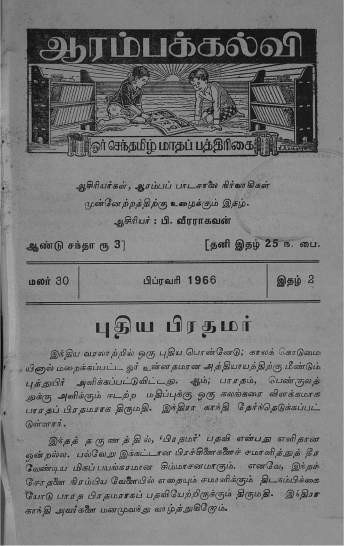 ஆரம்பக்கல்வி
ஓர் செந்தமிழ் மாதப் பத்திரிகை
ஆசிரியர்கள், ஆரம்பப் பாடசாலை நிர்வாகிகள்
முன்னேற்றத்திற்கு உழைக்கும் இதழ்.
ஆசிரியர் : பி. வீரராகவன்
ஆண்டு சந்தா ரூ 3] [தனி இதழ் 25 ந. பை.
மலர் 30 பிப்ரவரி 1966 இதழ் 2
புதிய பிரதமர்
இந்திய வரலாற்றில் ஒரு புதிய பொன்னேடு; காலக் கொடுமை
யினால் மறைக்கப்பட்ட ஓர் உன்னதமான அத்தியாயத்திற்கு மீண்டும்
புத்துயிர் அளிக்கப்பட்டுவிட்டது. ஆம்; பாரதம், பெண்குலத்
துக்கு அளிக்கும் ஈடற்ற மதிப்புக்கு ஒரு கலங்கரை விளக்கமாக
பாரதப் பிரதமராக திருமதி. இந்திரா காந்தி தேர்ந்தெடுக்கப்பட்
டுள்ளார்.
இந்தத் தருணத்தில், 'பிரதமர்' பதவி என்பது எளிதான
ஒன்றல்ல. பல்வேறு இக்கட்டான பிரச்சினைகளைச் சமாளித்துத் தீர
வேண்டிய மிகப் பயங்கரமான சிம்மாசனமாகும். எனவே, இந்தச்
சோதனை நிரம்பிய வேளையில் எதையும் சமாளிக்கும் திடநம்பிக்கை
யோடு பாரத பிரதமராகப் பதவியேற்றிருக்கும் திருமதி. இந்திரா
காந்தி அவர்களை மனமுவந்து வாழ்த்துகிறோம்.